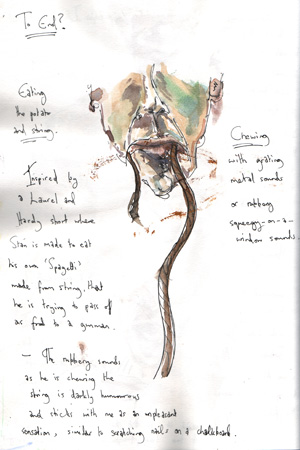 To End?
Eating
the potato
and string.
Inspired by
a Laurel and
Hardy short where
Stan is made to eat
his own 'Spagetti'
made from string, that
he is trying to pass off
as food to a gunman.
– The rubbery sounds
as he is chewing the
string is darkly humourous
and sticks with me as an unpleasant
sensation, similar to scratching nails on a chalkboard.
Chewing
with grating
metal sounds
or rubbery
squeegy-on-a-
window sounds.